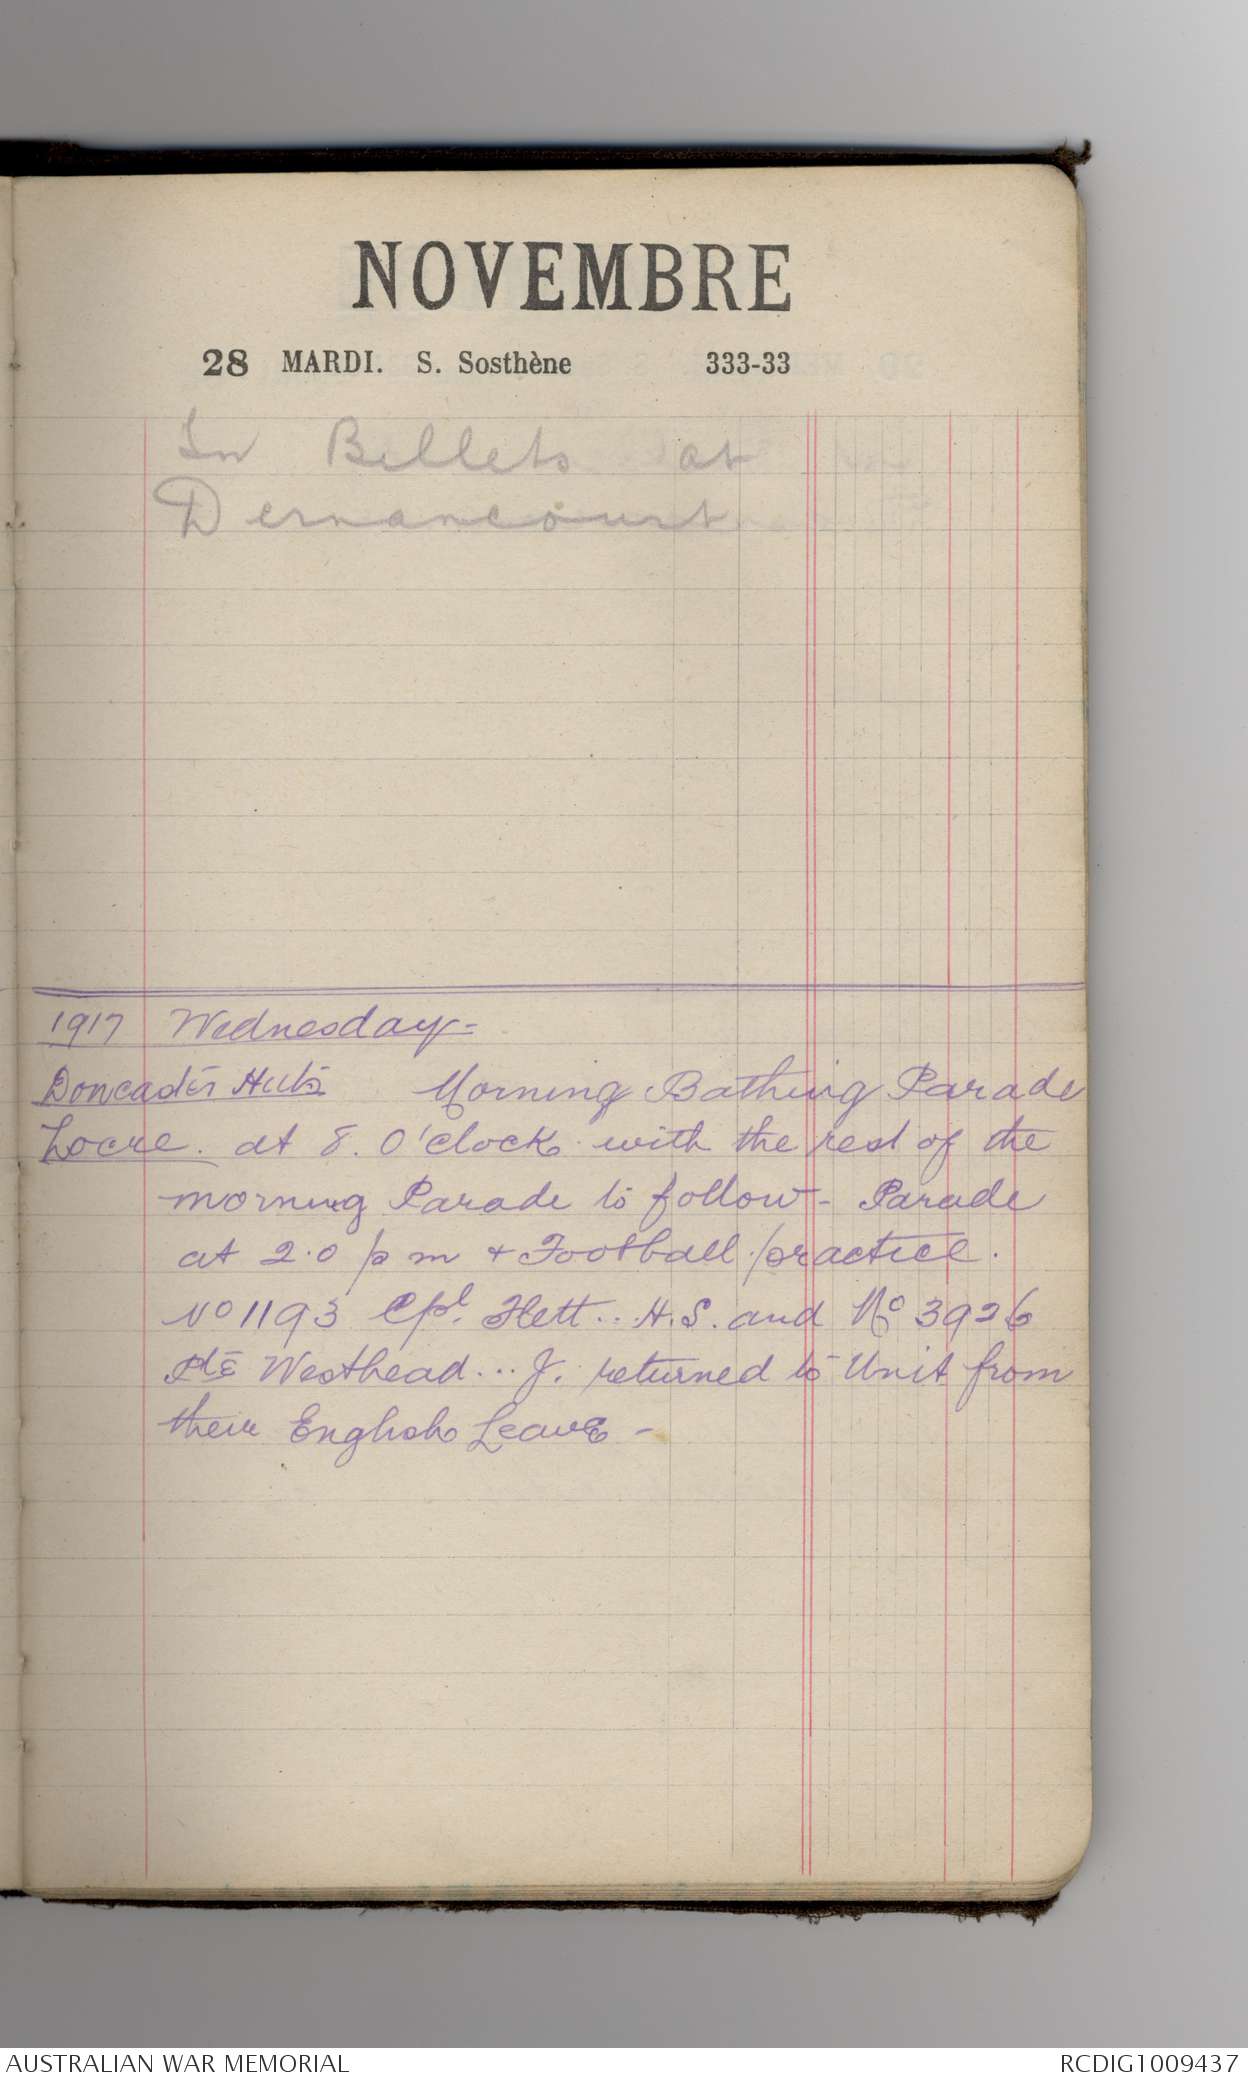 NOVEMBRE
28 MARDI. S. Sosthène 333-33
In Billets at
Dernancourt
1917 Wednesday-
Doncaster Huts Morning Bathing Parade
Locre. at 8. O'clock with the rest of the
morning Parade to follow - Parade
at 2.0 pm + Football practice.
No 1193 Cpl. Flett.. H.S. and No 3926
Pte Westhead... J. returned to Unit from
their English Leave -
AUSTRALIAN WAR MEMORIAL RCDIG1009437